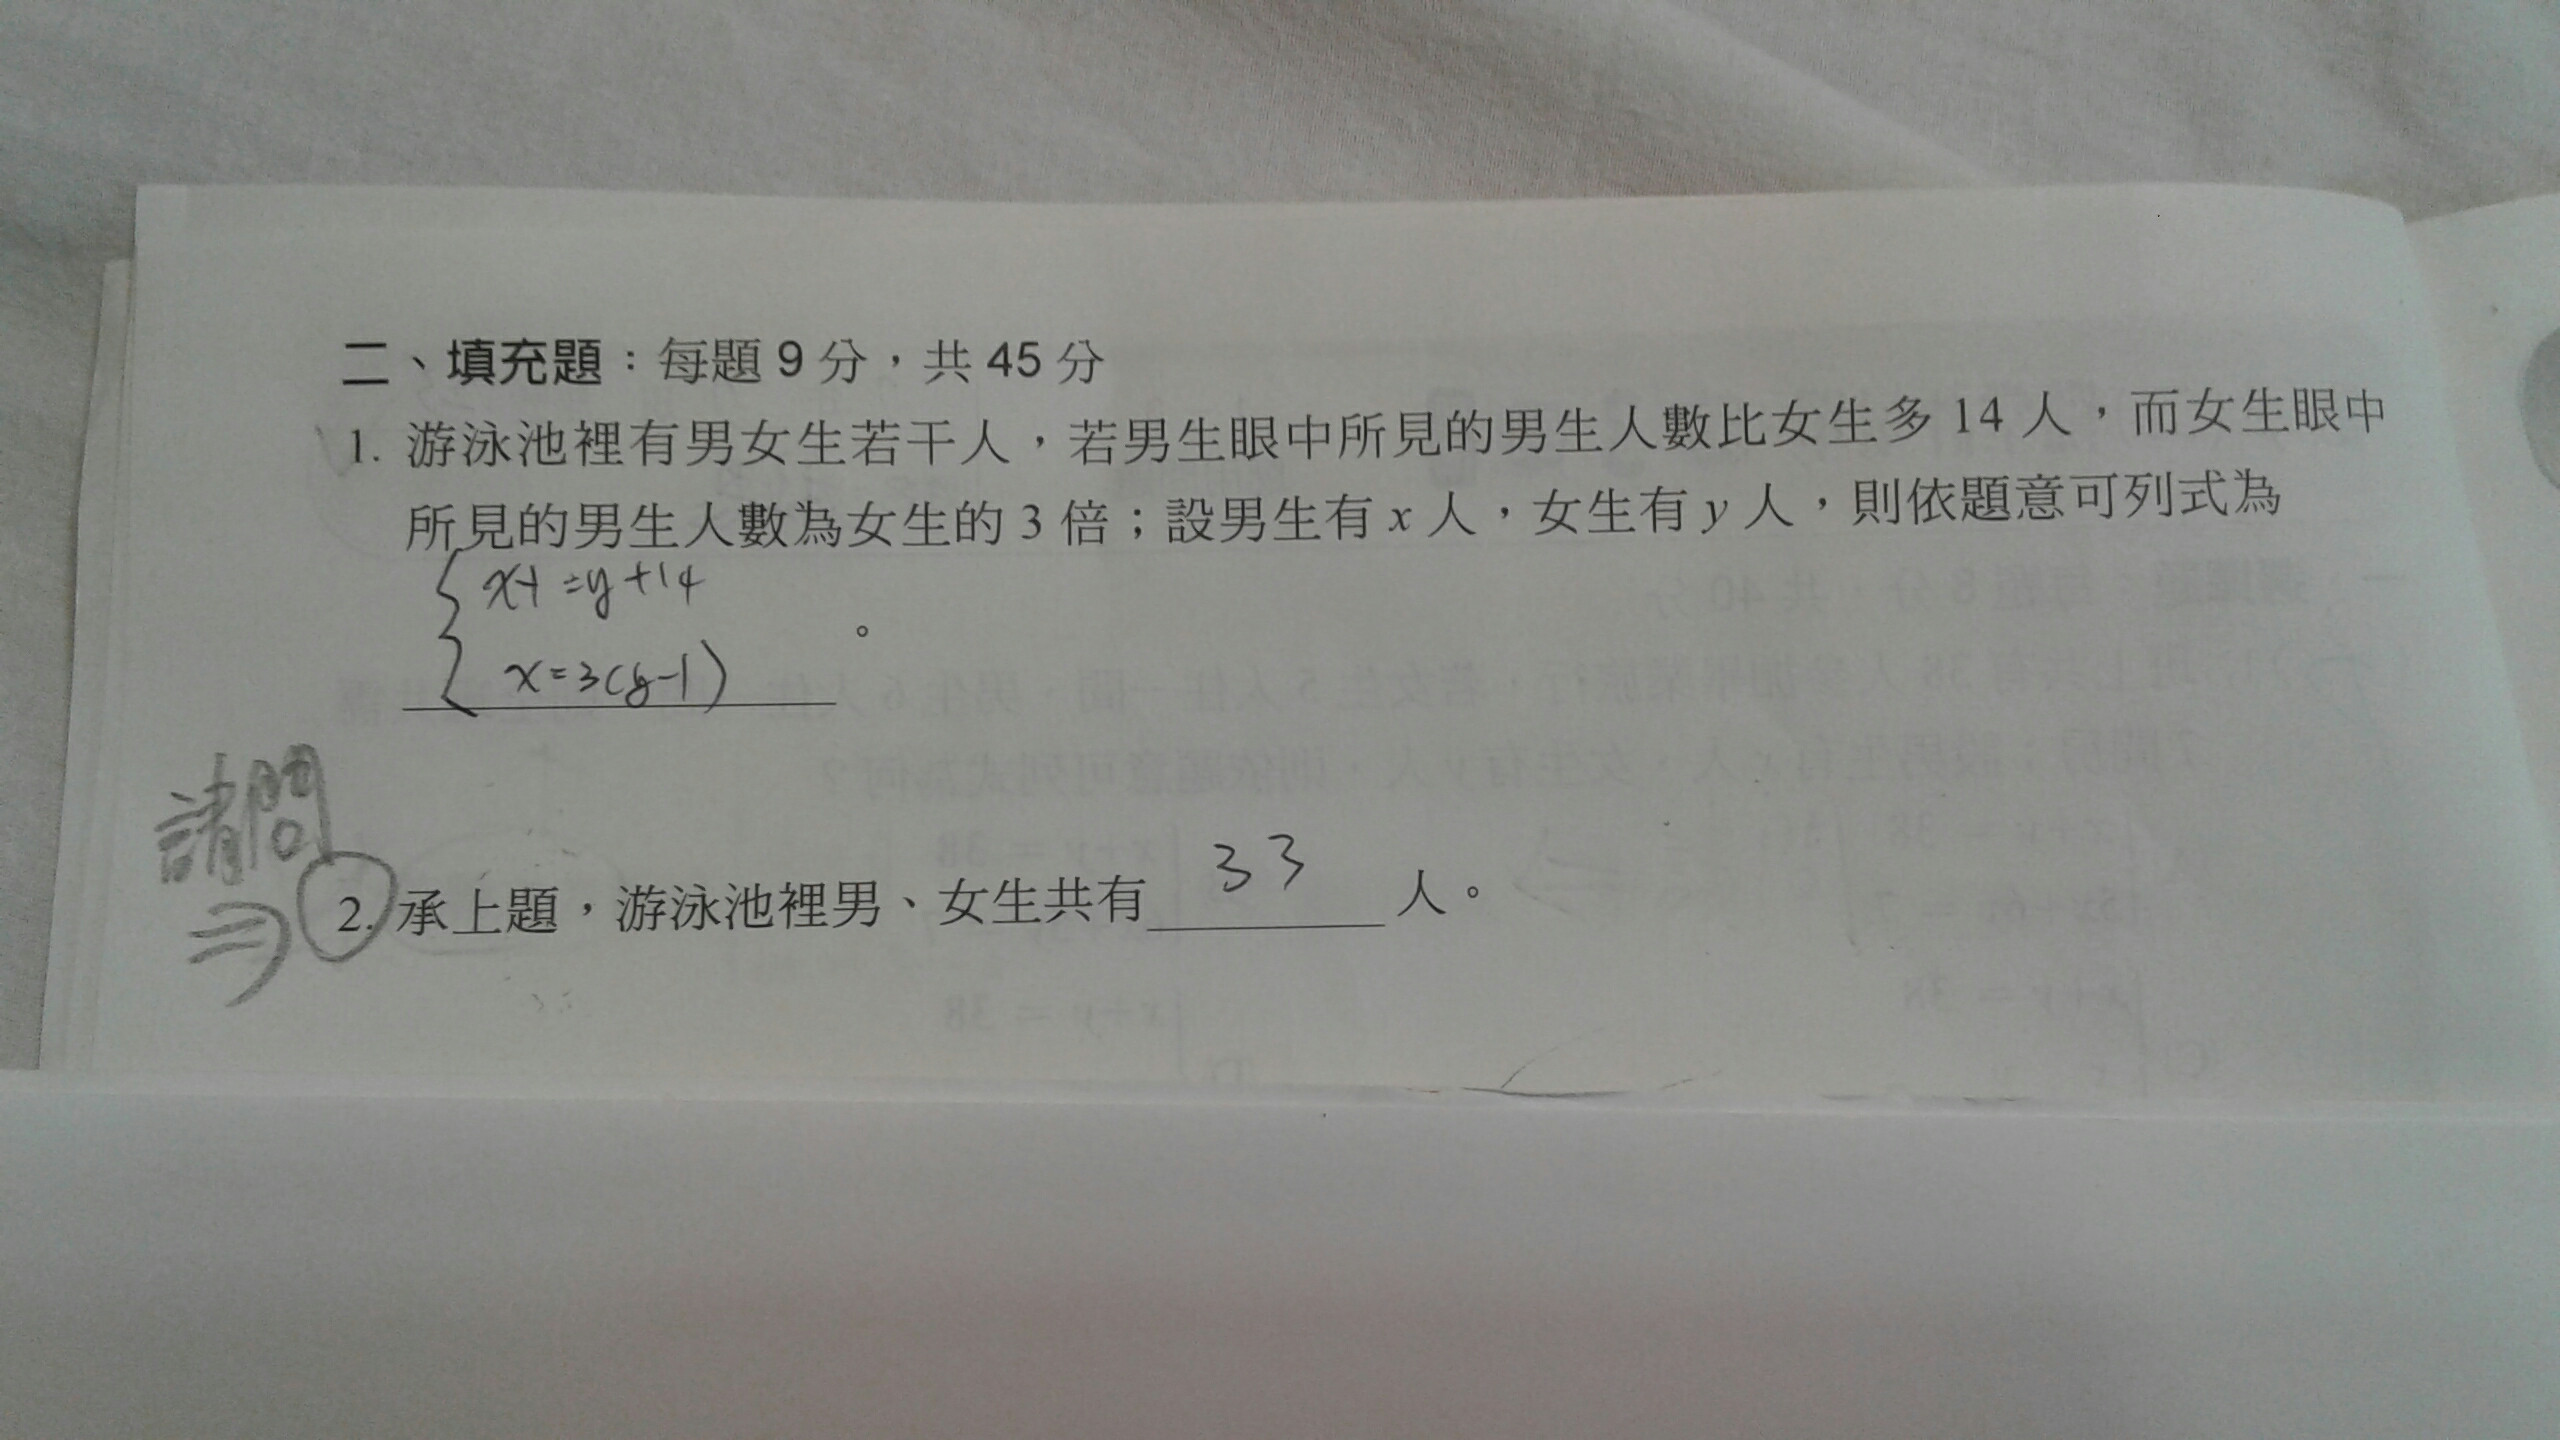 二、填充題：每題 9 分，共 45 分
1. 游泳池裡有男女生若干人，若男生眼中所見的男生人數比女生多 14 人，而女生眼中
所見的男生人數為女生的 3 倍；設男生有 x 人，女生有 y 人，則依題意可列式為
x-1=y+14
x=3(y-1) 。
請問
⇒ 2. 承上題，游泳池裡男、女生共有 33 人。